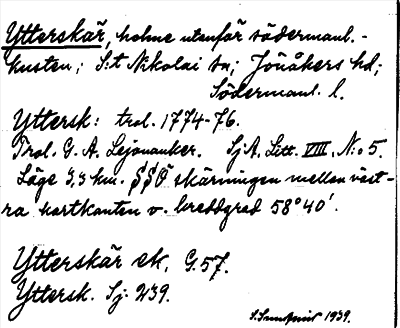 Ytterskär, holme utanför södermanl.-
kusten; S:t Nikolai sn; Jönåkers hd;
Södermanl. l.
Yttersk: trol. 1774-76.
Trol. G. A. Lejonanker. SjA. Litt. VIII, N:o 5.
Läge 3,3 km. SSÖ skärningen mellan väst-
ra kartkanten o. breddgrad 58°40'.
Ytterskär ek, G. 57.
Yttersk. Sj: 239.
1939.